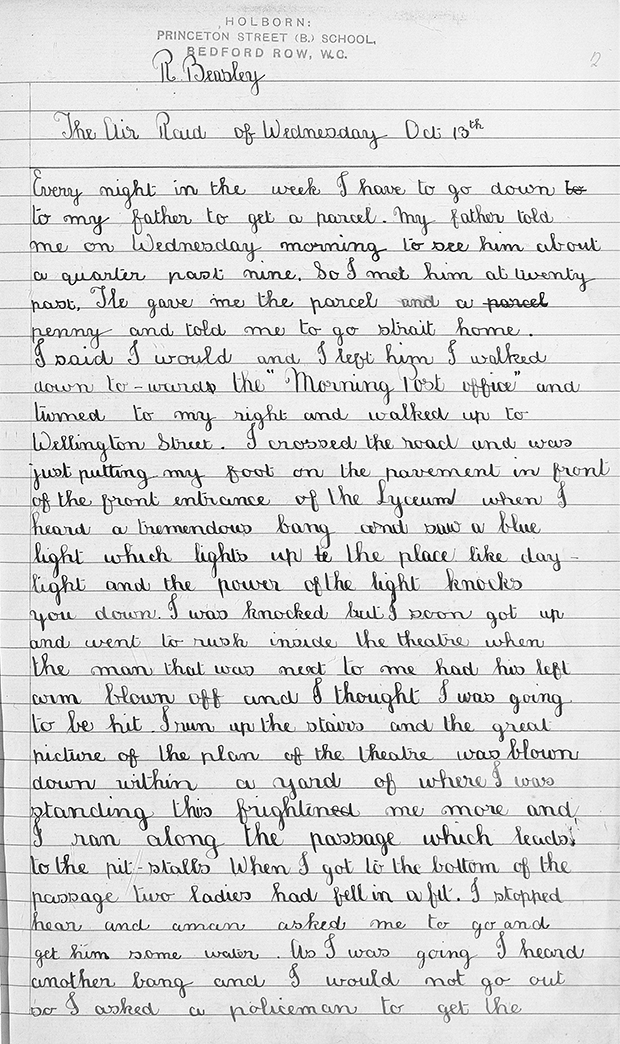 HOLBORN:
PRINCETON STREET (B.) SCHOOL,
BEDFORD ROW, W.C.
2
R. Beasley
The Air Raid of Wednesday Oct 13th
Every night in the week I have to go down to
to my father to get a parcel. My father told
me on Wednesday morning to see him about
a quarter past nine. So I met him at twenty
past. He gave me the parcel and a parcel
penny and told me to go strait home.
I said I would and I left him I walked
down to-wards the "Morning Post office" and
turned to my right and walked up to
Wellington Street. I crossed the road and was
just putting my foot on the pavement in front
of the front entrance of the Lyceum when I
heard a tremendous bang and saw a blue
light which lights up te the place like day-
light and the power of the light knocks
you down. I was knocked but I soon got up
and went to rush inside the theatre when
the man that was next to me had his left
arm blown off and I thought I was going
to be hit. I run up the stairs and the great
picture of the plan of the theatre was blown
down within a yard of where I was
standing this frightined me more and,
I ran along the passage which leads
to the pit-stalls When I got to the bottom of the
passage two ladies had fell in a fit. I stopped
hear and aman asked me to go and
get him some water. As I was going I heard
another bang and I would not go out
so I asked a policeman to get the